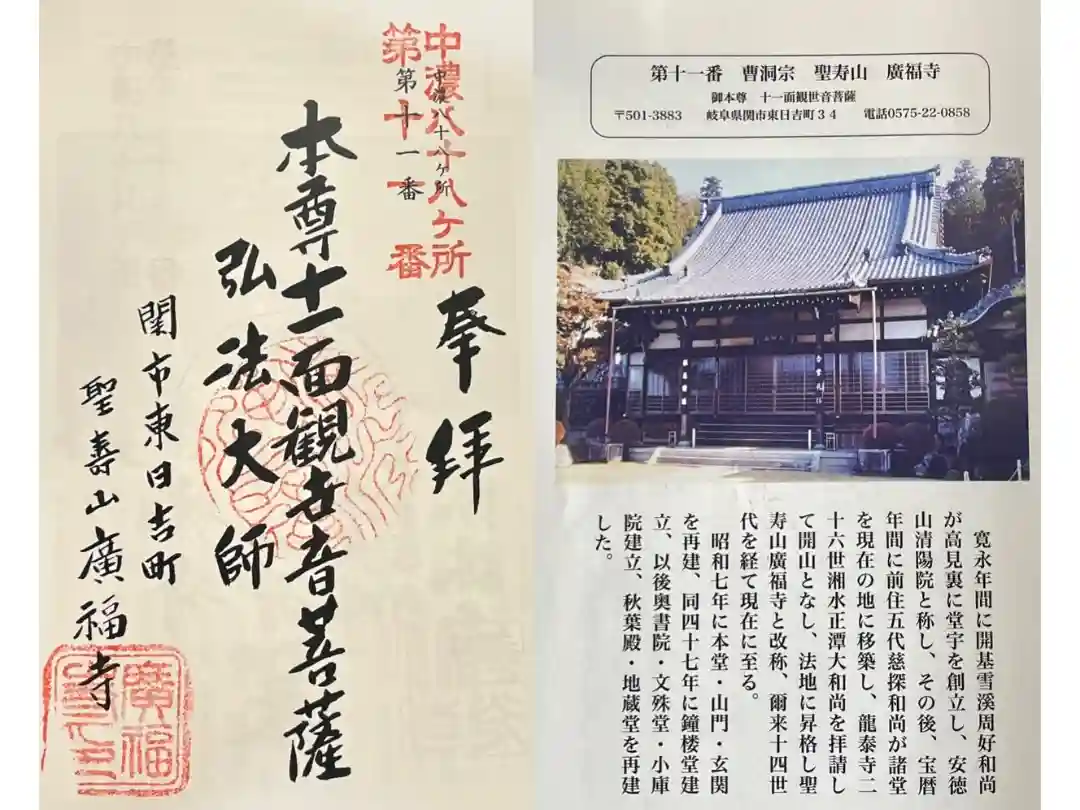 中濃八十八ケ所
第十一番
中濃八十八ヶ所
第十一番
奉拝
本尊十一面観世音菩薩
弘法大師
関市東日吉町
聖壽山廣福寺
廣福
第十一番　曹洞宗　聖寿山　廣福寺
御本尊　十一面観世音菩薩
〒501-3883　岐阜県関市東日吉町３４　電話0575-22-0858
寛永年間に開基雪溪周好和尚
が高見裏に堂宇を創立し、安徳
山清陽院と称し、その後、宝暦
年間に前住五代慈探和尚が諸堂
を現在の地に移築し、龍泰寺二
十六世湘水正潭大和尚を拝請し
て開山となし、法地に昇格し聖
寿山廣福寺と改称、爾来十四世
代を経て現在に至る。
昭和七年に本堂・山門・玄関
を再建、同四十七年に鐘楼堂建
立、以後奥書院・文殊堂・小庫
院建立、秋葉殿・地蔵堂を再建
した。